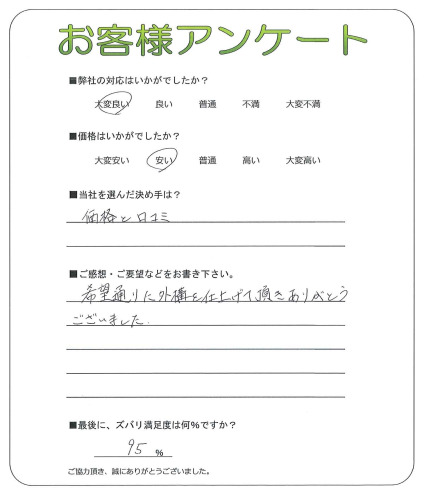 お客様アンケート
■弊社の対応はいかがでしたか？
大変良い 良い 普通 不満 大変不満
■価格はいかがでしたか？
大変安い 安い 普通 高い 大変高い
■当社を選んだ決め手は？
価格と口コミ
■ご感想・ご要望などをお書き下さい。
希望通りに外構を仕上げて頂きありがとう
ございました.
■最後に、ズバリ満足度は何%ですか？
95 %
ご協力頂き、誠にありがとうございました。